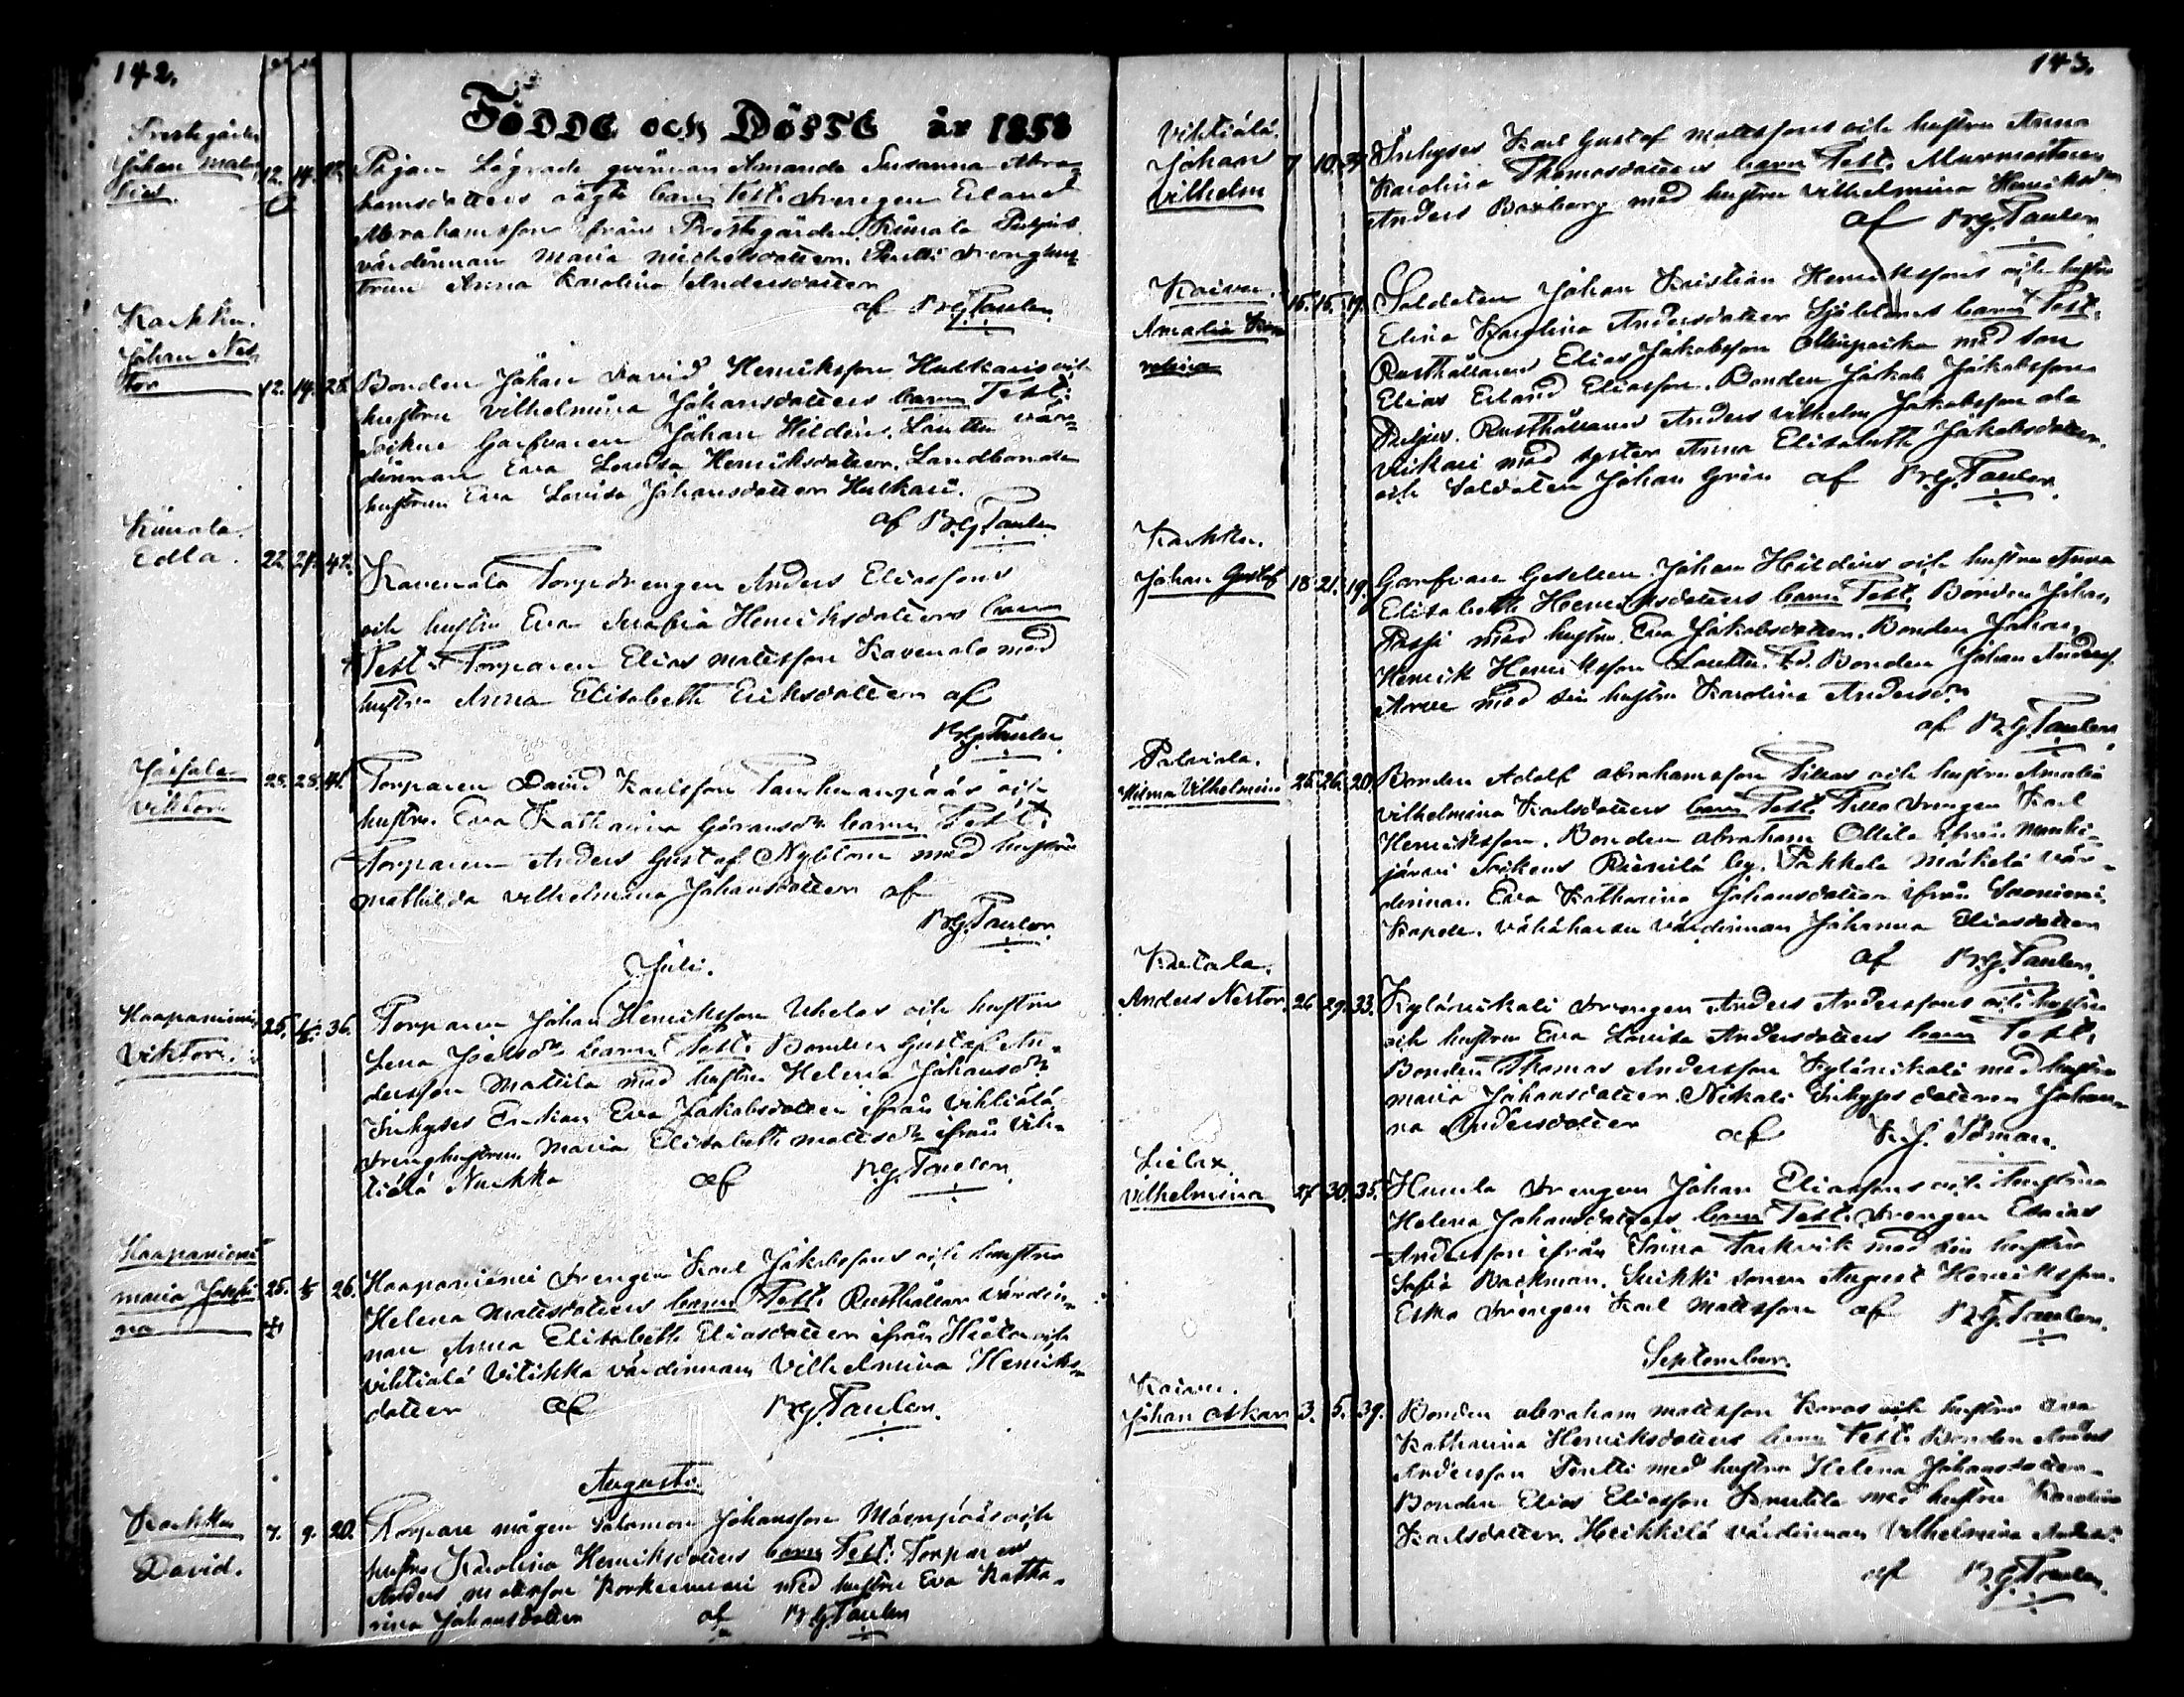 142.
Födde och Döpte år 1858
Johan
12. 14.
Pigan Lägrade qvinnan Amanda Susanna Abra-
hamsdotters oägte barn Test: drengen Erland
Abrahamsson från Prestegården. Kimala
värdinnan Maria Michelsdotter. Pentti drenghus-
trun Anna Karolina Andersdotter
af B:G:Taulen.
Karkku.
Johan Nes-
tor
12. 14. 28.
Bonden Johan David Henriksson och
hustru Vilhelmina Johansdotters barn Test:
Garfvaren Johan Hildén. Lauttu vär-
dinnan Eva Lovisa Henriksdotter. Landbonde
hustrun Eva Lovisa Johansdotter
af B:G:Taulen
Kimala.
Edla.
22. 27. 42.
Kavenala Torpdrengen Anders Eliassons
och hustru Eva Serafia Henriksdotters barn
Test: Torparen Elias Mattsson Kavenala med
hustru Anna Elisabeth Eriksdotter af
B:G:Taulen
Viktor
28. 28. 41.
Torparen David Karlsson och
hustru Eva Katharina Göransdr barn Test:
Torparen Anders Gustaf Nyblom med hustru
Mathilda Vilhelmina Johansdotter af
B:G:Taulen.
Juli.
Haapaniemi
Viktor.
25. 36.
Torparen Johan Henriksson Uhelas och hustru
Lena Joelsdr barn Test: Bonden Gustaf An-
dersson Mattila med hustru Helena Johansdr
Inhyses Enkan Eva Jakobsdotter ifrån Vihtiälä
drenghustrun Maria Elisabeth Mattsdr ifrån Vih-
tiälä Nuekka af B:G:Taulen.
Haapaniemi
Maria Josefi-
na
25. 26.
Haapaniemi drengen Karl Jakobssons och hustru
Helena Mattsdotters barn Test: Rusthållare värdin-
nan Anna Elisabeth Eliasdotter ifrån Hieta och
Vihtiälä Vitikka värdinnan Vilhelmina Henriks-
dotter af B:G:Taulen.
Augusti.
Karkku
David.
7. 9. 20.
Torpare mågen Salomon Johansson och
hustru Karolina Henriksdotters barn Test: Torparen
Anders Mattsson med hustru Eva Katha-
rina Johansdotter af B:G:Taulen
143.
Vihtiälä.
Johan
Vilhelm
7 10. 34
Inhyses Karl Gustaf Mattssons och hustru Anna
Karolina Thomasdotters barn Test: Murmästaren
Anders Boxberg med hustru Vilhelmina Henriksdr
af B:G:Taulen
Koivu.
Amalia Ka-
rolina
15. 15. 19.
Soldaten Johan Kristian Henrikssons och hustru
Elina Karolina Andersdotter Sjöbloms barn Test:
Rusthållaren Elias Jakobsson Ollinpaika med son
Elias Erland Eliasson. Bonden Jakob Jakobsson
Rusthållaren Anders Vilhelm Jakobsson ala
med syster Anna Elisabeth Jakobsdotter
och Soldaten Johan Grön af B:G:Taulen.
Karkku.
Johan Gustaf
18 21. 19.
Garfvare Gesellen Johan Hildéns och hustru Anna
Elisabeth Henriksdotters barn Test: Bonden Johan
Passi med hustru Eva Jakobsdotter. Bonden Johan
Henrik Henriksson Lauttu. Bonden Johan Anders
Arvee med sin hustru Karolina Andersdr
af B:G:Taulen.
Palviala.
Hilma Vilhelmina
25. 26. 20.
Bonden Adolf Abrahamsson Pillas och hustru Amalia
Vilhelmina Karlsdotters barn Test: drengen Karl
Henriksson. Bonden Abraham Ollila ifrån Mouhi-
järvi Sokens by. Pakkala Mäkelä vär-
dinnan Eva Katharina Johansdotter ifrån Suoniemi
Kapell. värdinnan Johanna Eliasdotter
af B:G:Taulen.
Anders Nestor
26 29. 33.
Kylänikali drengen Anders Anderssons och hustru
och hustru Eva Lovisa Andersdotters barn Test:
Bonden Thomas Andersson Kylänikali med hustru
Maria Johansdotter. Nikali Inhyses dottren Johan-
na Andersdotter af
Lielax.
Vilhelmina
27. 30. 35.
Humla drengen Johan Eliassons och hustru
Helena Johansdotters barn Test: drengen Esaias
Andersson ifrån med sin hustru
Sofia Backman. sonen August Henriksson.
drengen Karl Mattsson af B:G:Taulen.
September.
Koivu.
Johan Oskar
3. 5. 39.
Bonden Abraham Mattsson Koros och hustru Eva
Katharina Henriksdotters barn Test: Bonden Anders
Andersson Pentti med hustru Helena Johansdotter.
Bonden Elias Eliasson Knuutila med hustru Karolina
Karlsdotter. Heikkilä värdinnan Vilhelmina Andersdr
af B:G:Taulen.